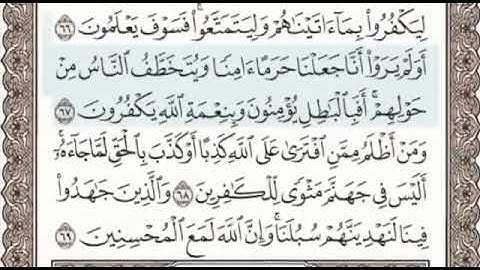 لِيَكْفُرُوا۟ بِمَآ ءَاتَيْنَٰهُمْ وَلِيَتَمَتَّعُوا۟ ۖ فَسَوْفَ يَعْلَمُونَ ٦٦
أَوَلَمْ يَرَوْا۟ أَنَّا جَعَلْنَا حَرَمًا ءَامِنًا وَيُتَخَطَّفُ ٱلنَّاسُ مِنْ
حَوْلِهِمْ ۚ أَفَبِٱلْبَٰطِلِ يُؤْمِنُونَ وَبِنِعْمَةِ ٱللَّهِ يَكْفُرُونَ ٦٧
وَمَنْ أَظْلَمُ مِمَّنِ ٱفْتَرَىٰ عَلَى ٱللَّهِ كَذِبًا أَوْ كَذَّبَ بِٱلْحَقِّ لَمَّا جَآءَهُۥٓ ۚ
أَلَيْسَ فِى جَهَنَّمَ مَثْوًى لِّلْكَٰفِرِينَ ٦٨ وَٱلَّذِينَ جَٰهَدُوا۟
فِينَا لَنَهْدِيَنَّهُمْ سُبُلَنَا ۚ وَإِنَّ ٱللَّهَ لَمَعَ ٱلْمُحْسِنِينَ ٦٩